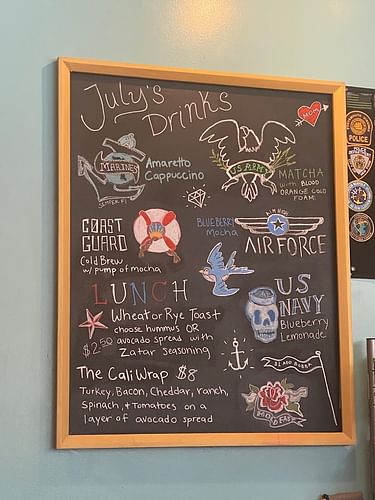 July's
Drinks
MOM
MARINES
SEMPER FI
Amaretto
Cappuccino
U.S. ARMY
MATCHA
with BLOOD
ORANGE COLD
FOAM
COAST
GUARD
Cold Brew
w/ pump of mocha
BLUEBERRY
Mocha
AIM HIGH
AIR FORCE
LUNCH
Wheat or Rye Toast
choose hummus OR
avocado spread with
Zatar Seasoning
$2.50
US
NAVY
Blueberry
Lemonade
The Cali Wrap $8
Turkey, Bacon, Cheddar, ranch,
Spinach, + Tomatoes on a
layer of avocado spread
POLICE